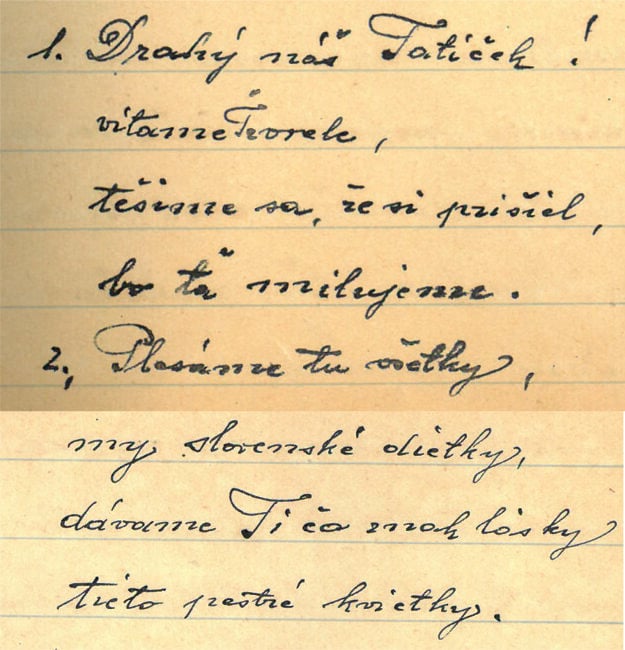 1. Drahý náš Tatíček!
vítame Ťa vrele,
tešíme sa, že si prišiel,
bo ťa milujeme.
2., Plesáme tu všetky,
my slovenské dietky,
dávame Ti čo znak lásky
tieto pestré kvietky.